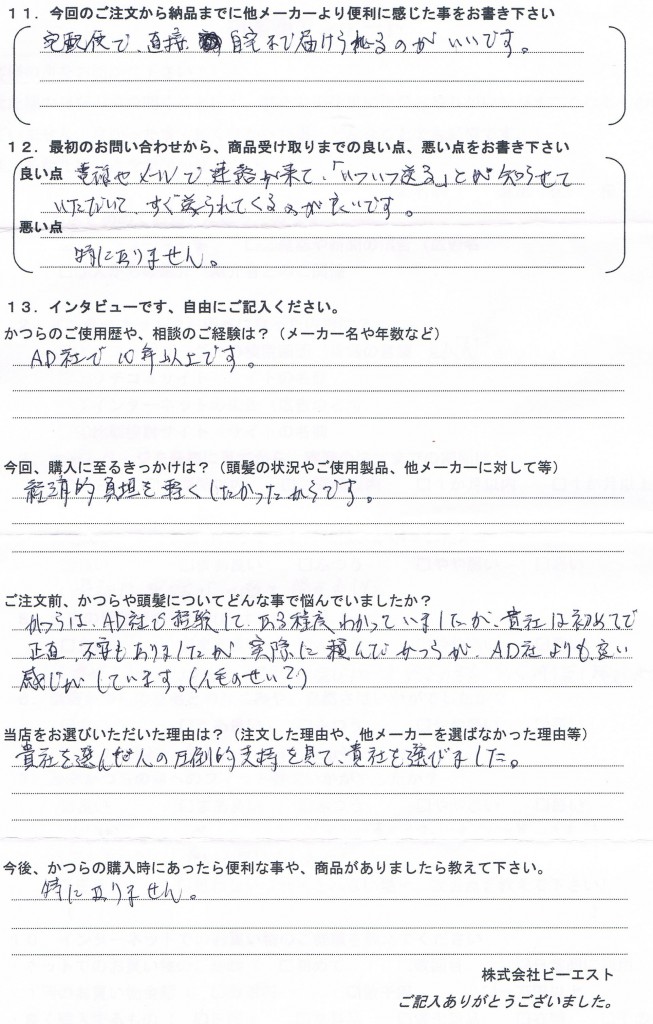 １１．今回のご注文から納品までに他メーカーより便利に感じた事をお書き下さい
宅配便で、直接自宅まで届けられるのがいいです。
１２．最初のお問い合わせから、商品受け取りまでの良い点、悪い点をお書き下さい
良い点 電話やメールで連絡が来て、「いついつ送る」とか知らせて
いただいて、すぐ送られてくるのが良いです。
悪い点
特にありません。
１３．インタビューです、自由にご記入ください。
かつらのご使用歴や、相談のご経験は？（メーカー名や年数など）
AD社で10年以上です。
今回、購入に至るきっかけは？（頭髪の状況やご使用製品、他メーカーに対して等）
経済的負担を軽くしたかったからです。
ご注文前、かつらや頭髪についてどんな事で悩んでいましたか？
かつらは、AD社で経験して、ある程度わかっていましたが、貴社は初めてで
正直、不安もありましたが、実際に頼んでかつらが、AD社よりも良い
感じがしています。（人毛のせい？）
当店をお選びいただいた理由は？（注文した理由や、他メーカーを選ばなかった理由等）
貴社を選んだ人の圧倒的支持を見て、貴社を選びました。
今後、かつらの購入時にあったら便利な事や、商品がありましたら教えて下さい。
特にありません。
株式会社ビーエスト
ご記入ありがとうございました。